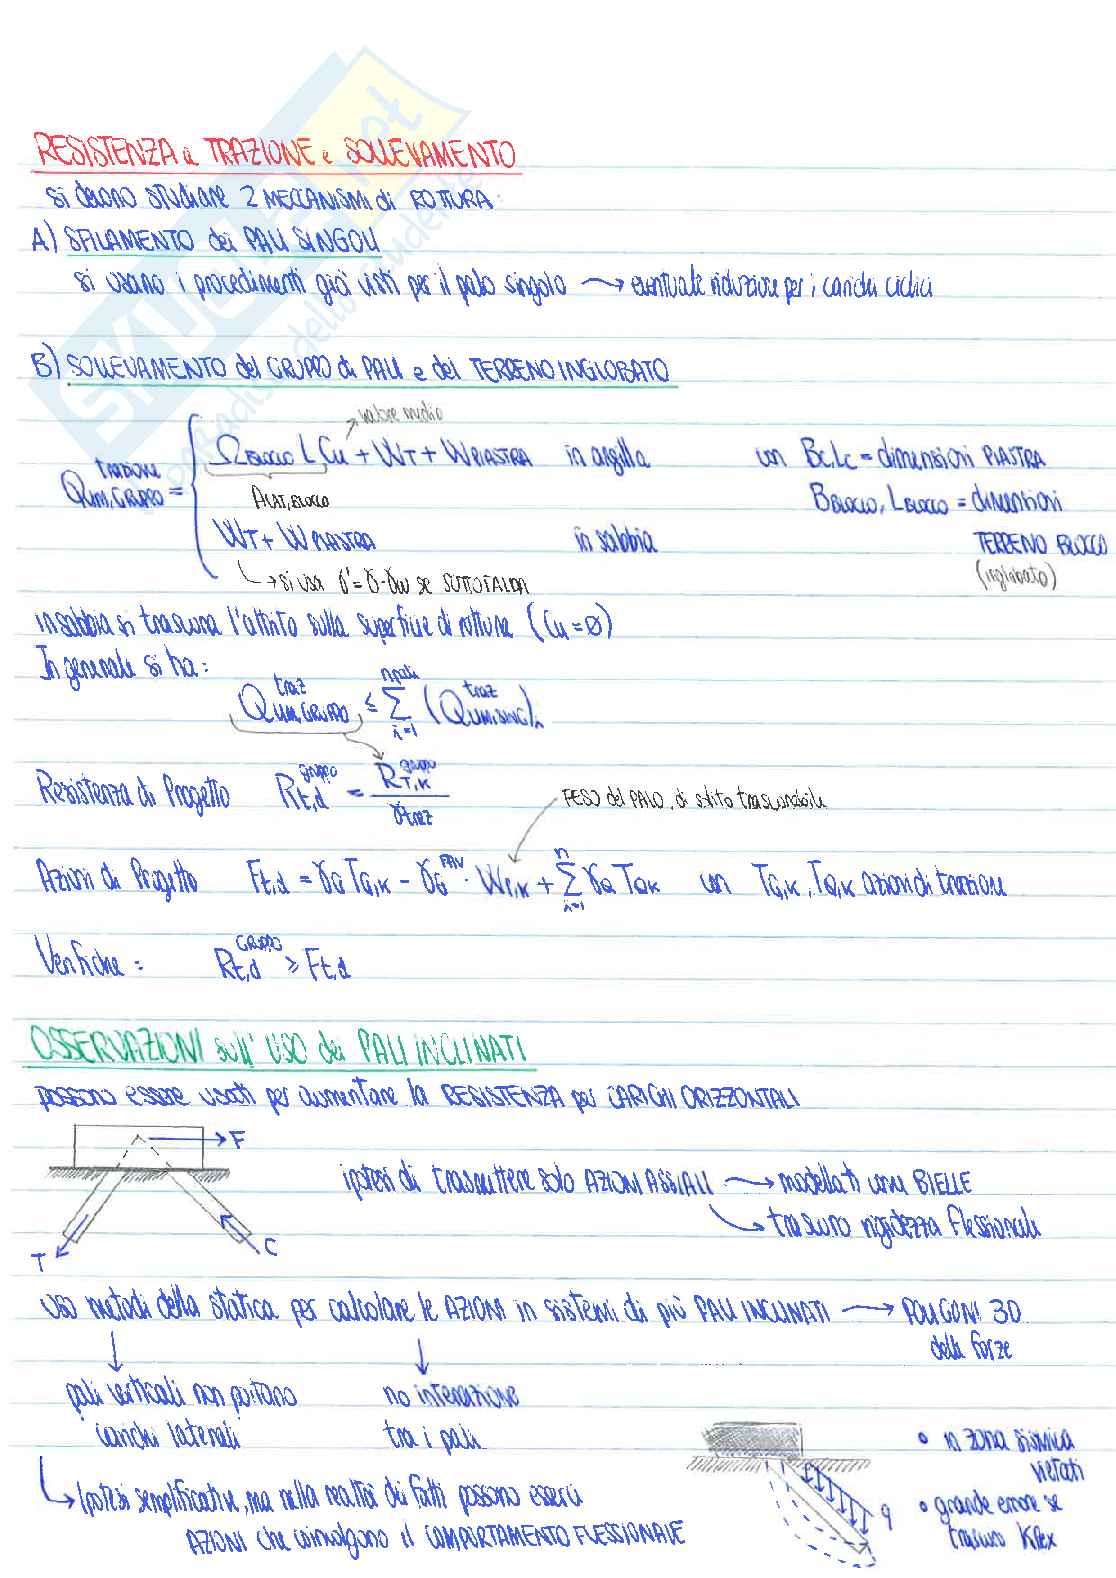 RESISTENZA a TRAZIONE e SOLLEVAMENTO
si devono studiare 2 MECCANISMI di ROTTURA:
A) SFILAMENTO dei PALI SINGOLI
si usano i procedimenti già visti per il palo singolo → eventuale riduzione per i carichi ciclici
B) SOLLEVAMENTO del GRUPPO di PALI e del TERRENO INGLOBATO
valore medio
Q_LIM,GRUPPO^trazione = { Ω_BLOCCO L Cu + W_T + W_PIASTRA in argilla con Bc, Lc = dimensioni PIASTRA
A_LAT,BLOCCO B_BLOCCO, L_BLOCCO = dimensioni
W_T + W_PIASTRA in sabbia TERRENO BLOCCO
↳ si usa γ' = γ - γw se SOTTOFALDA (inglobato)
in sabbia si trascura l'attrito sulla superficie di rottura (Cu = Ø)
In generale si ha:
Q_LIM,GRUPPO^traz ≤ Σ_{i=1}^{n pali} (Q_LIM,SING^traz)_i
Resistenza di Progetto R_t,d^gruppo = R_T,K^gruppo / γ_traz
PESO del PALO, di solito trascurabile
Azioni di Progetto F_t,d = γ_G T_G,K - γ_G^FAV · W_P,K + Σ_{i=1}^{n} γ_Q T_QK con T_G,K, T_Q,K azioni di trazione
Verifiche: R_t,d^GRUPPO ≥ F_t,d
OSSERVAZIONI sull' USO dei PALI INCLINATI
possono essere usati per aumentare la RESISTENZA per CARICHI ORIZZONTALI
F
ipotesi di trasmettere solo AZIONI ASSIALI → modellati come BIELLE
↳ trascuro rigidezza flessionale
T C
uso metodi della statica per calcolare le AZIONI in sistemi di più PALI INCLINATI → POLIGONI 3D
delle forze
pali verticali non portano no interazione
carichi laterali tra i pali
• in zona sismica
vietati
↳ Ipotesi semplificative, ma nella realtà dei fatti possono esserci
q
• grande errore se
AZIONI che coinvolgono il COMPORTAMENTO FLESSIONALE
trascuro Kflex